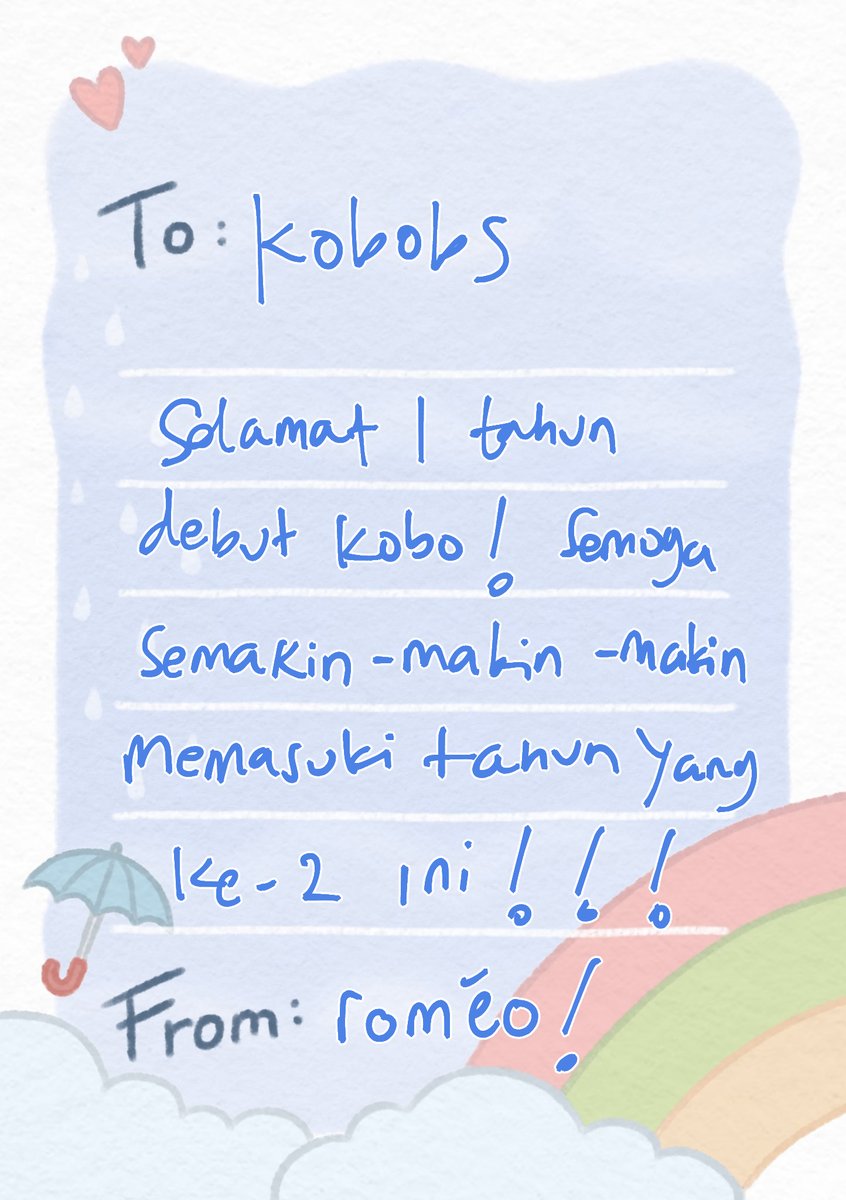 To: Kobobs
Selamat 1 tahun
debut kobo! Semoga
semakin-makin-makin
memasuki tahun yang
ke-2 ini!!!
From: roméo!